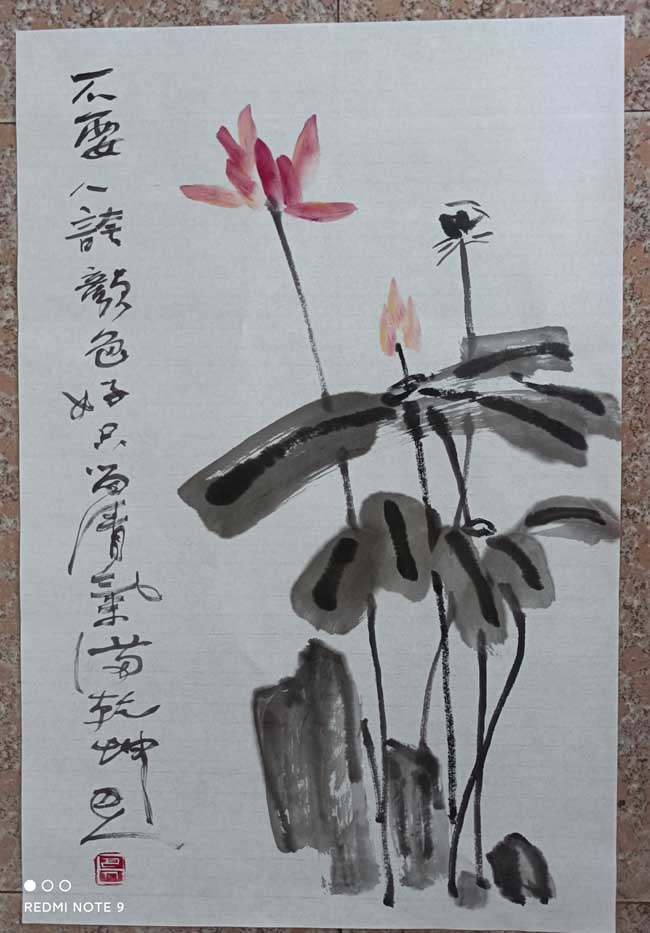 不要人誇顏色好只留清氣滿乾坤
REDMI NOTE 9